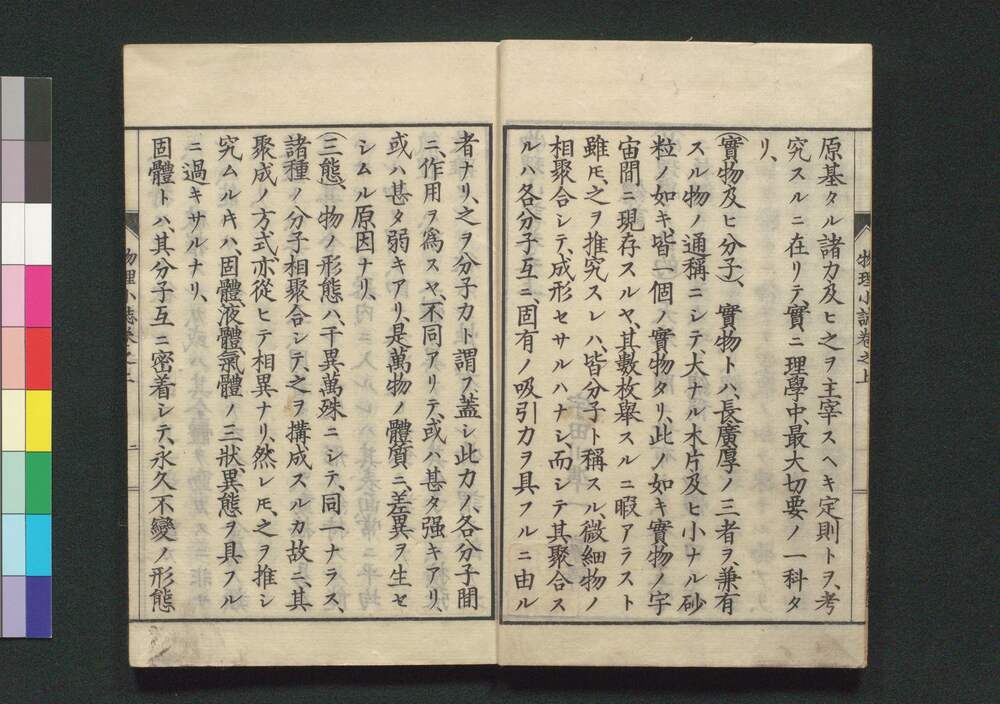 原基タル諸力及ヒ之ヲ主宰スヘキ定則トヲ、考
究スルニ在リテ、實ニ理學中、最大切要ノ一科タ
リ、
(實物及ヒ分子)、實物トハ、長廣厚ノ三者ヲ、兼有
スル物ノ通稱ニシテ、大ナル木片及ヒ小ナル砂
粒ノ如キ、皆一個ノ實物タリ、此ノ如キ實物ノ宇
宙間ニ現存スルヤ、其數枚舉スルニ暇アラスト
雖𪜈、之ヲ推究スレハ、皆分子ト稱スル、微細物ノ
相聚合シテ、成形セサルハナシ、而シテ其聚合ス
ルハ各分子互ニ、固有ノ吸引力ヲ具フルニ由ル
物理小誌卷之上
者ナリ、之ヲ分子力ト謂フ、蓋シ此力ノ、各分子間
ニ、作用ヲ爲スヤ、不同アリテ、或ハ甚タ强キアリ、
或ハ甚タ弱キアリ、是萬物ノ體質ニ、差異ヲ生セ
シムル原因ナリ、
(三態)、物ノ形態ハ、千異萬殊ニシテ、同一ナラス、
諸種ノ分子相聚合シテ、之ヲ搆成スルカ故ニ、其
聚成ノ方式、亦從ヒテ相異ナリ、然レ𪜈、之ヲ推シ
究ムルキハ、固體、液體、氣體ノ三狀、異態ヲ具フル
ニ過キサルナリ、
固體トハ、其分子互ニ密着シテ、永久不變ノ形態
物理小誌卷之上
二